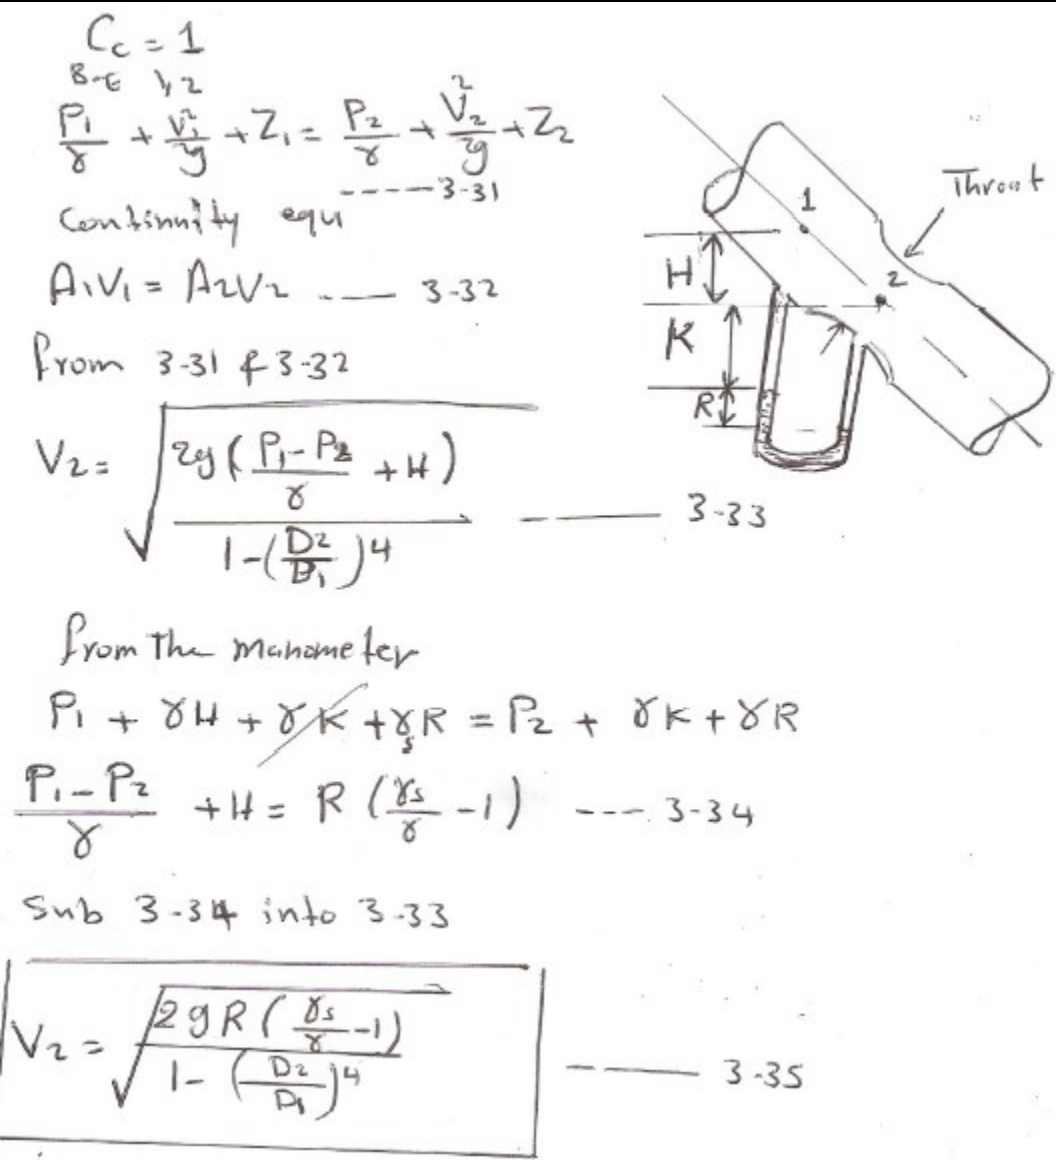 Cc = 1
B-E 1,2
P1/γ + V1²/2g + Z1 = P2/γ + V2²/2g + Z2
----- 3-31
Continuity equ
A1V1 = A2V2 ---- 3-32
from 3-31 & 3-32
V2 = √(2g((P1-P2)/γ + H) / (1-(D2/D1)4)) ---- 3-33
from The manometer
P1 + γH + γK + γsR = P2 + γK + γR
(P1-P2)/γ + H = R (γs/γ -1) ---- 3-34
Sub 3-34 into 3-33
V2 = √(2gR(γs/γ -1) / (1-(D2/D1)4)) ---- 3-35
Throat
1
2
H
K
R